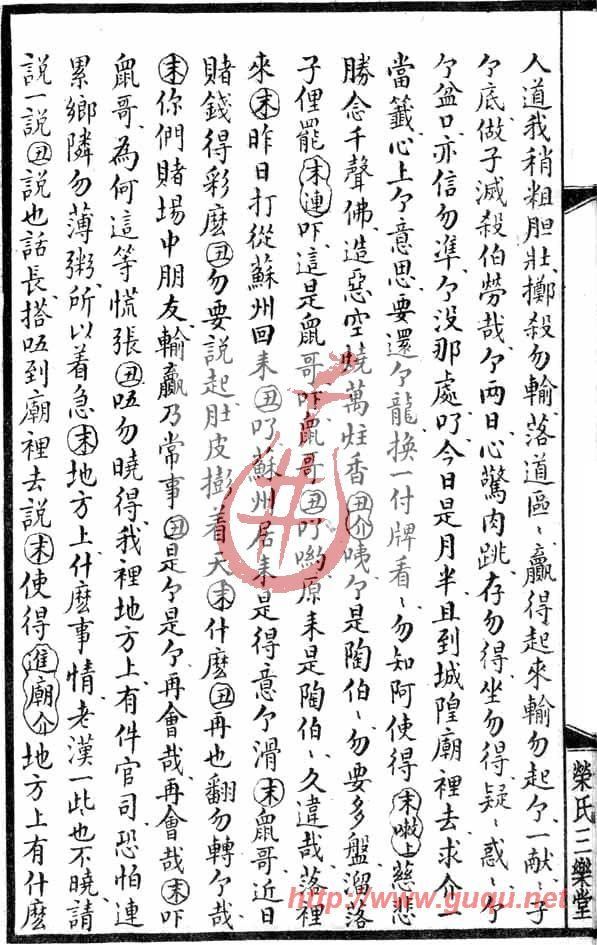 人道我稍粗胆壯擲殺勿輸落道區〻贏得起來輸勿起ㄅ一献子
ㄅ底做子滅殺伯勞哉ㄅ兩日心驚肉跳存勿得坐勿得疑〻惑〻ㄅ
ㄅ盆口亦信勿準ㄅ没那處叮今日是月半且到城隍廟裡去求介一
當籤心上ㄅ意思要還ㄅ龍換一付牌看〻勿知阿使得末嗽上慈悲
勝念千聲佛造惡空燒萬炷香丑介咦ㄅ是陶伯〻勿要多盤溜落
子俚罷末連吓這是鼠哥吓鼠哥丑叮喲原来是陶伯〻久違哉落裡
來末昨日打從蘇州回来丑叮蘇州居来是得意ㄅ滑末鼠哥近日
賭錢得彩麽丑勿要說起肚皮搿着天末什麽丑再也翻勿轉ㄅ哉
末你們賭場中朋友輸贏乃常事丑是ㄅ是ㄅ再會哉再會哉末吓
鼠哥為何這等慌張丑唔勿曉得我裡地方上有件官司恐怕連
累鄉隣勿薄粥所以着急末地方上什麽事情老漢一些也不曉請
說一說丑說也話長搭唔到廟裡去說末使得進廟介地方上有什麽
榮氏三樂堂
http://www.gugu.net